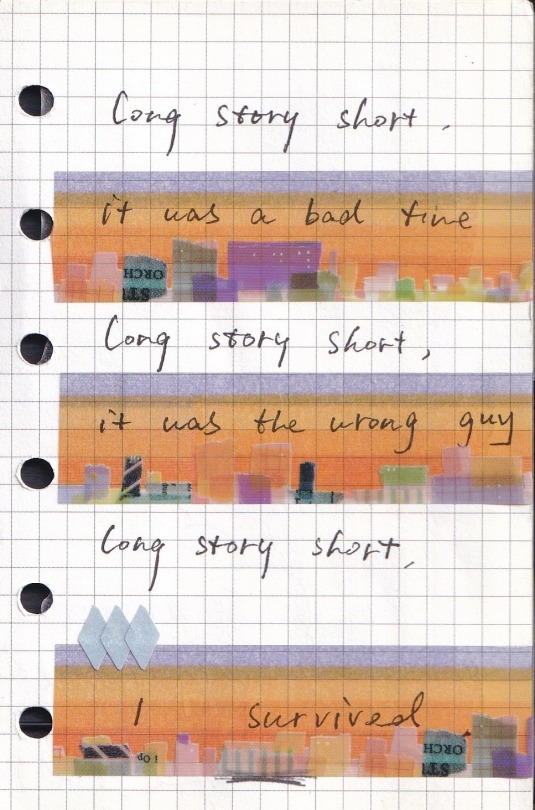 Long story short,
it was a bad time
ORCH
ST
Long story short,
it was the wrong guy
Long story short,
I survived
ORCH
ST